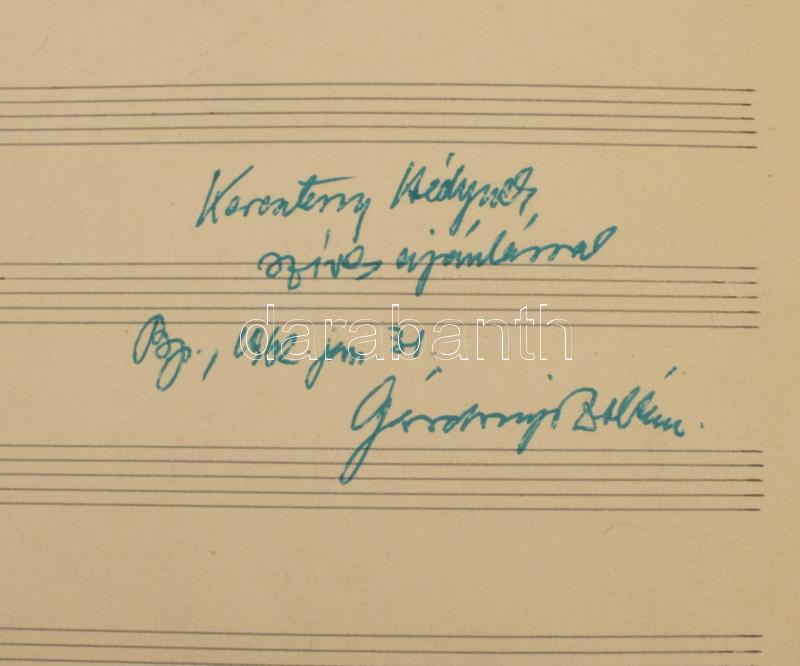 Keresztessy Hédynek
szíves ajánlással
Bp., 1962 jan 31.
Gárdonyi Zoltán.
darabanth